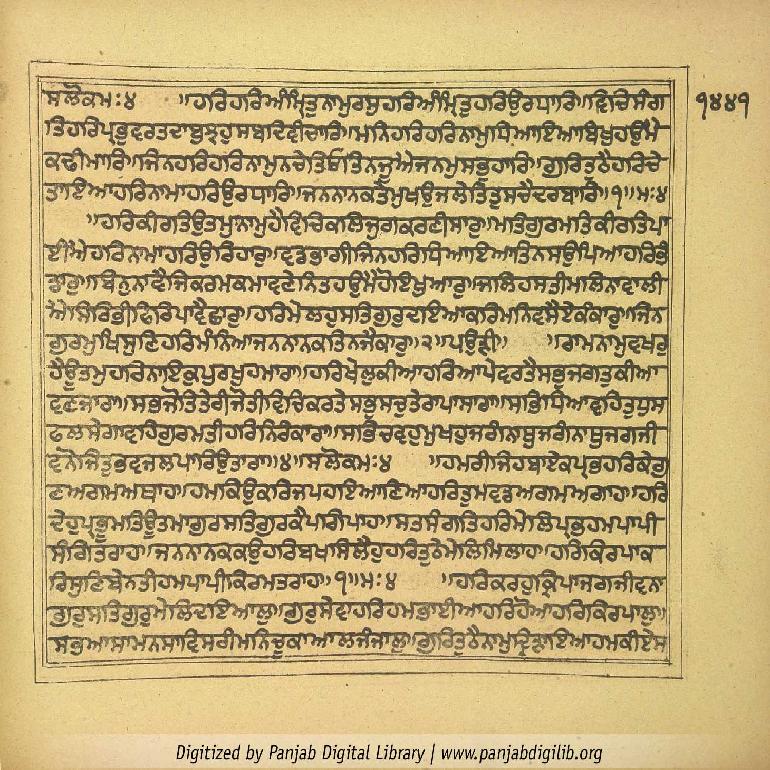 ਸਲੋਕਮਃ੪ ॥ਹਰਿਹਰਿਅੰਮ੍ਰਿਤੁਨਾਮੁਰਸੁਹਰਿਅੰਮ੍ਰਿਤੁਹਰਿਉਰਧਾਰਿ॥ਵਿਚਿਸੰਗ ੧੪੪੧
ਤਿਹਰਿਪ੍ਰਭੁਵਰਤਦਾਬੁਝਹੁਸਬਦਿਵੀਚਾਰਿ॥ਮਨਿਹਰਿਹਰਿਨਾਮੁਧਿਆਇਆਬਿਖੁਹਉਮੈ
ਕਢੀਮਾਰਿ॥ਜਿਨਹਰਿਹਰਿਨਾਮੁਨਚੇਤਿਓਤਿਨਜੂਐਜਨਮੁਸਭੁਹਾਰਿ॥ਗੁਰਿਤੁਠੈਹਰਿਚੇ
ਤਾਇਆਹਰਿਨਾਮਾਹਰਿਉਰਧਾਰਿ॥ਜਨਨਾਨਕਤੇਮੁਖਉਜਲੇਤਿਤੁਸਚੈਦਰਬਾਰਿ॥੧॥ਮਃ੪
॥ਹਰਿਕੀਰਤਿਉਤਮੁਨਾਮੁਹੈਵਿਚਿਕਲਿਜੁਗਕਰਣੀਸਾਰੁ॥ਮਤਿਗੁਰਮਤਿਕੀਰਤਿਪਾ
ਈਐਹਰਿਨਾਮਾਹਰਿਉਰਿਹਾਰੁ॥ਵਡਭਾਗੀਜਿਨਹਰਿਧਿਆਇਆਤਿਨਸਉਪਿਆਹਰਿਭੰ
ਡਾਰੁ॥ਬਿਨੁਨਾਵੈਜਿਕਰਮਕਮਾਵਣੇਨਿਤਹਉਮੈਹੋਇਖੁਆਰੁ॥ਜਲਿਹਸਤੀਮਲਿਨਾਵਾਲੀ
ਐਸਿਰਿਭੀਫਿਰਿਪਾਵੈਛਾਰੁ॥ਹਰਿਮੇਲਹੁਸਤਿਗੁਰੁਦਇਆਕਰਿਮਨਿਵਸੈਏਕੰਕਾਰੁ॥ਜਿਨ
ਗੁਰਮੁਖਿਸੁਣਿਹਰਿਮੰਨਿਆਜਨਨਾਨਕਤਿਨਜੈਕਾਰੁ॥੨॥ਪਉੜੀ॥ ॥ਰਾਮਨਾਮੁਵਖਰੁ
ਹੈਊਤਮੁਹਰਿਨਾਇਕੁਪੁਰਖੁਹਮਾਰਾ॥ਹਰਿਖੇਲੁਕੀਆਹਰਿਆਪੇਵਰਤੈਸਭੁਜਗਤੁਕੀਆ
ਵਣਜਾਰਾ॥ਸਭਜੋਤਿਤੇਰੀਜੋਤੀਵਿਚਿਕਰਤੇਸਭੁਸਚੁਤੇਰਾਪਾਸਾਰਾ॥ਸਭਿਧਿਆਵਹਿਤੁਧੁਸ
ਫਲਸੇਗਾਵਹਿਗੁਰਮਤੀਹਰਿਨਿਰੰਕਾਰਾ॥ਸਭਿਚਵਹੁਮੁਖਹੁਜਗੰਨਾਥੁਜਗੰਨਾਥੁਜਗਜੀ
ਵਨੋਜਿਤੁਭਵਜਲਪਾਰਿਉਤਾਰਾ॥੪॥ਸਲੋਕਮਃ੪ ॥ਹਮਰੀਜਿਹਬਾਏਕਪ੍ਰਭਹਰਿਕੇਗੁ
ਣਅਗਮਅਥਾਹ॥ਹਮਕਿਉਕਰਿਜਪਹਇਆਣਿਆਹਰਿਤੁਮਵਡਅਗਮਅਗਾਹ॥ਹਰਿ
ਦੇਹੁਪ੍ਰਭੂਮਤਿਊਤਮਾਗੁਰਸਤਿਗੁਰਕੈਪਗਿਪਾਹ॥ਸਤਸੰਗਤਿਹਰਿਮੇਲਿਪ੍ਰਭਹਮਪਾਪੀ
ਸੰਗਿਤਰਾਹ॥ਜਨਨਾਨਕਕਉਹਰਿਬਖਸਿਲੈਹੁਹਰਿਤੁਠੈਮੇਲਿਮਿਲਾਹ॥ਹਰਿਕਿਰਪਾਕ
ਰਿਸੁਣਿਬੇਨਤੀਹਮਪਾਪੀਕਿਰਮਤਰਾਹ॥੧॥ਮਃ੪ ॥ਹਰਿਕਰਹੁਕ੍ਰਿਪਾਜਗਜੀਵਨਾ
ਗੁਰੁਸਤਿਗੁਰੁਮੇਲਿਦਇਆਲੁ॥ਗੁਰਸੇਵਾਹਰਿਹਮਭਾਈਆਹਰਿਹੋਆਹਰਿਕਿਰਪਾਲੁ॥
ਸਭਆਸਾਮਨਸਾਵਿਸਰੀਮਨਿਚੂਕਾਆਲਜੰਜਾਲੁ॥ਗੁਰਿਤੁਠੈਨਾਮੁਦ੍ਰਿੜਾਇਆਹਮਕੀਏਸ
Digitized by Panjab Digital Library | www.panjabdigilib.org